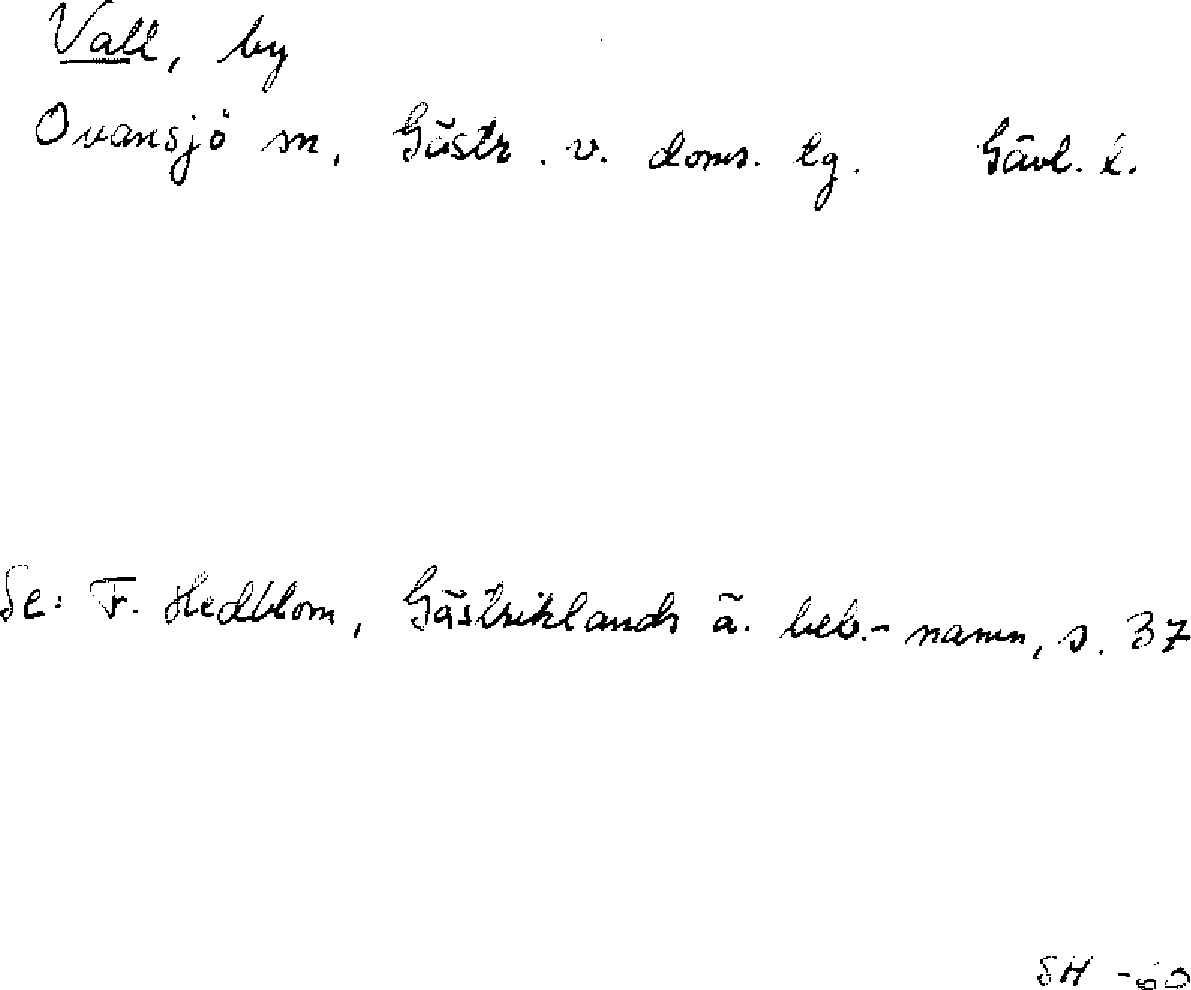 Vall, by
Ovansjö sn, Gästr. v. doms. lg. Gävl. l.
Se: F. Hedblom, Gästriklands ä. beb.-namn, s. 37
SH -60